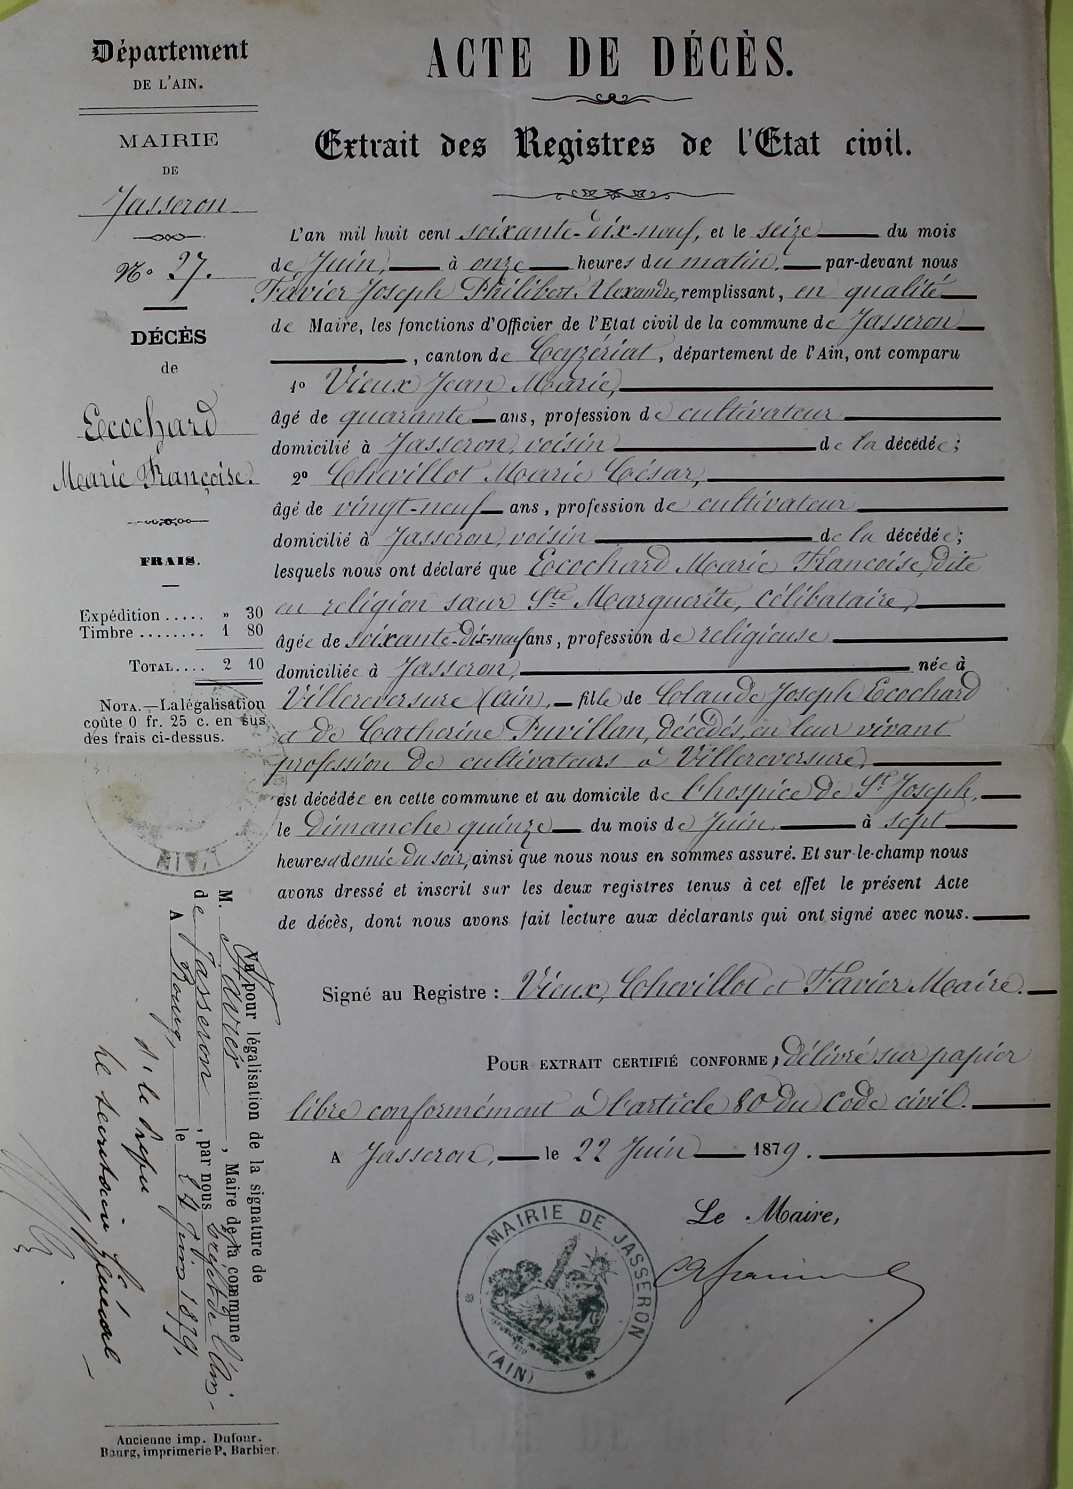 Département
DE L'AIN.
MAIRIE
DE
Jasseron
N° 27.
DÉCÈS
de
Ecochard
Marie Françoise.
FRAIS.
Expédition ..... » 30
Timbre ........ 1 80
TOTAL.... 2 10
NOTA.—La légalisation
coûte 0 fr. 25 c. en sus
des frais ci-dessus.
ACTE DE DÉCÈS.
Extrait des Registres de l'Etat civil.
L'an mil huit cent soixante-dix-neuf, et le seize du mois
de Juin, à onze heures du matin, par-devant nous
Favier Joseph Philibert Alexandre, remplissant, en qualité
de Maire, les fonctions d'Officier de l'Etat civil de la commune de Jasseron
, canton de Ceyzériat, département de l'Ain, ont comparu
1° Vieux Jean Marie,
âgé de quarante ans, profession de cultivateur
domicilié à Jasseron, voisin de la décédée;
2° Chevillot Marie César,
âgé de vingt-neuf ans, profession de cultivateur
domicilié à Jasseron, voisin de la décédée;
lesquels nous ont déclaré que Ecochard Marie Françoise, dite
en religion sœur Ste Marguerite, célibataire,
âgée de soixante-dix-neuf ans, profession de religieuse
domiciliée à Jasseron, née à
Villereversure (ain), fille de Claude Joseph Ecochard
et de Catherine Puvillan, décédés, en leur vivant
profession de cultivateurs à Villereversure,
est décédée en cette commune et au domicile de l'hospice de St Joseph,
le Dimanche quinze du mois de Juin, à sept
heures et demie du soir, ainsi que nous nous en sommes assuré. Et sur-le-champ nous
avons dressé et inscrit sur les deux registres tenus à cet effet le présent Acte
de décès, dont nous avons fait lecture aux déclarants qui ont signé avec nous.
Signé au Registre : Vieux, Chevillot et Favier Maire.
POUR EXTRAIT CERTIFIÉ CONFORME, délivré sur papier
libre conformément à l'article 80 du Code civil.
A Jasseron, le 22 Juin 1879.
Le Maire,
MAIRIE DE JASSERON
(AIN)
L'AIN
Vu pour légalisation de la signature de
M. Favier, Maire de la commune
de Jasseron, par nous préfet de l'Ain
A Bourg, le 24 Juin 1879,
Pr le Préfet
Le secrétaire Général
Ancienne imp. Dufour.
Bourg, imprimerie P. Barbier.